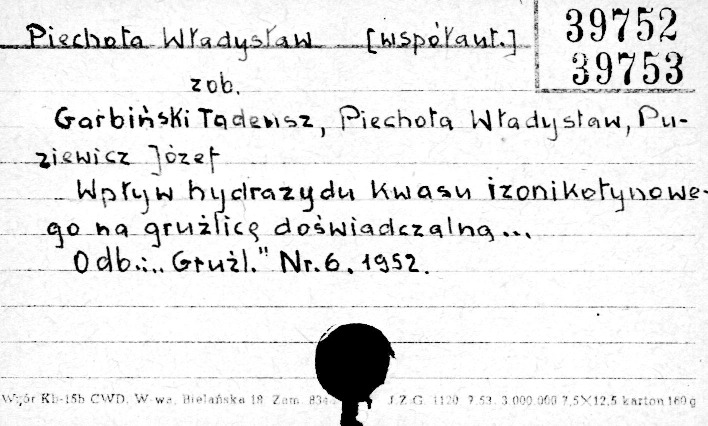 Piechota Władysław [współaut.]
39752
39753
zob.
Garbiński Tadeusz, Piechota Władysław, Pu-
ziewicz Józef
Wpływ hydrazydu kwasu izonikotynowe-
go na gruźlicę doświadczalną...
Odb.: „Gruźl." Nr. 6. 1952.
Wzór Kb-15b CWD. W-wa, Bielańska 18 Zam. J.Z.G. 1120 7.53. 3.000.000 7,5×12,5 karton 160 g